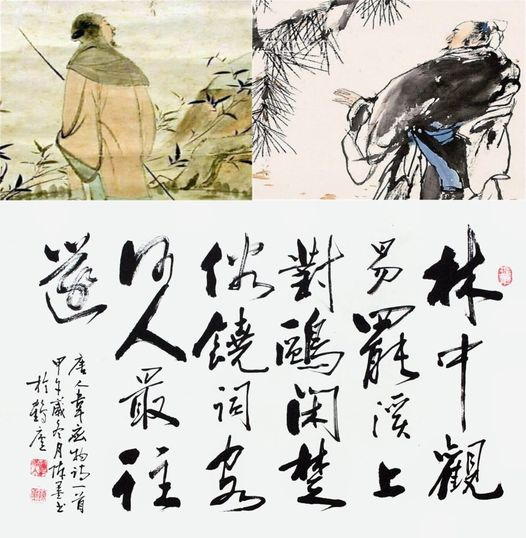 林中觀
易罷溪上
對鷗闲楚
俗饒詞客
何人最往
還
唐人韋應物詩一首
甲午歲冬月墨书
於鶴庐